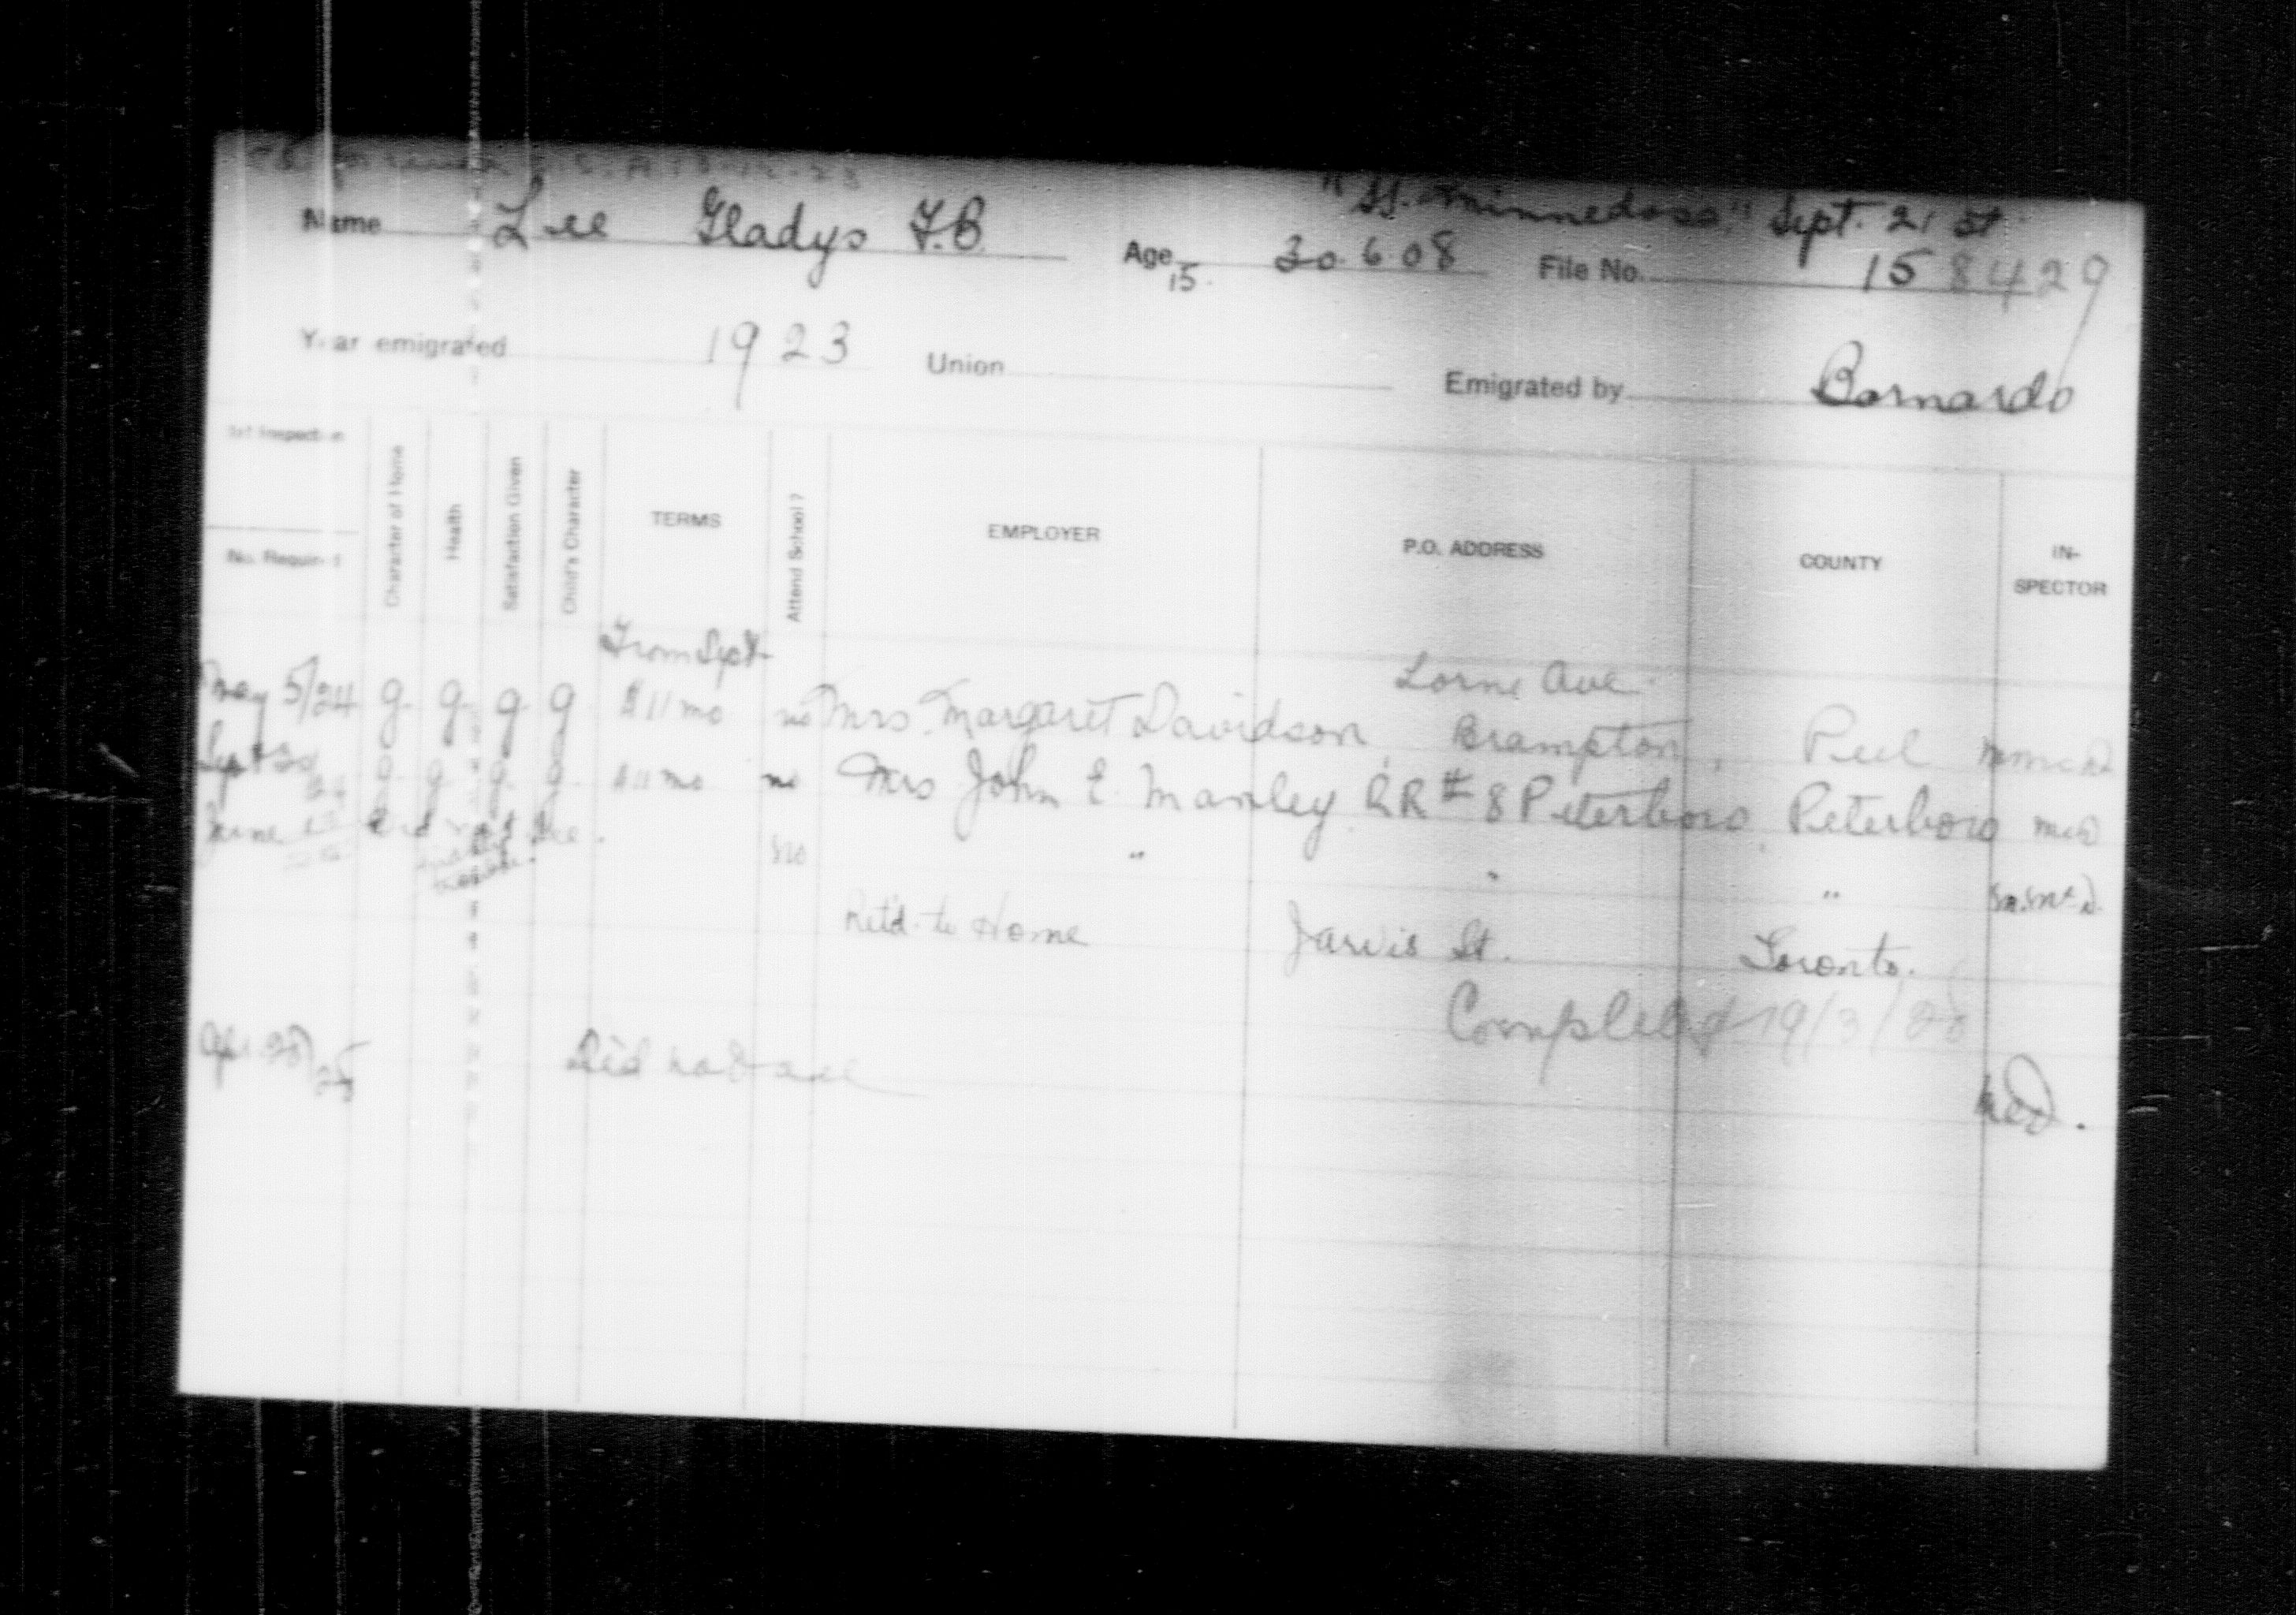 "SS. Minnedosa" Sept. 21 st
Name Lee Gladys F.B. Age 30.6.08 File No. 158429
15.
Year emigrated 1923 Union Emigrated by Barnardo
1st Inspection
No. Required
Character of Home
Health
Satisfaction Given
Child's Character
TERMS
Attend School?
EMPLOYER
P.O. ADDRESS
COUNTY
IN-
SPECTOR
From Sept
Lorne Ave.
May 5/24 g. g. g. g $11 mo no Mrs. Margaret Davidson, Brampton, Peel
Sept g g g g $11 mo no Mrs John E. Manley RR #8 Peterboro Peterboro
June Did not see. no " " "
Ret'd. to Home Jarvis St. Toronto.
Completed 19/3/28
Apr. 28/25 Did not see